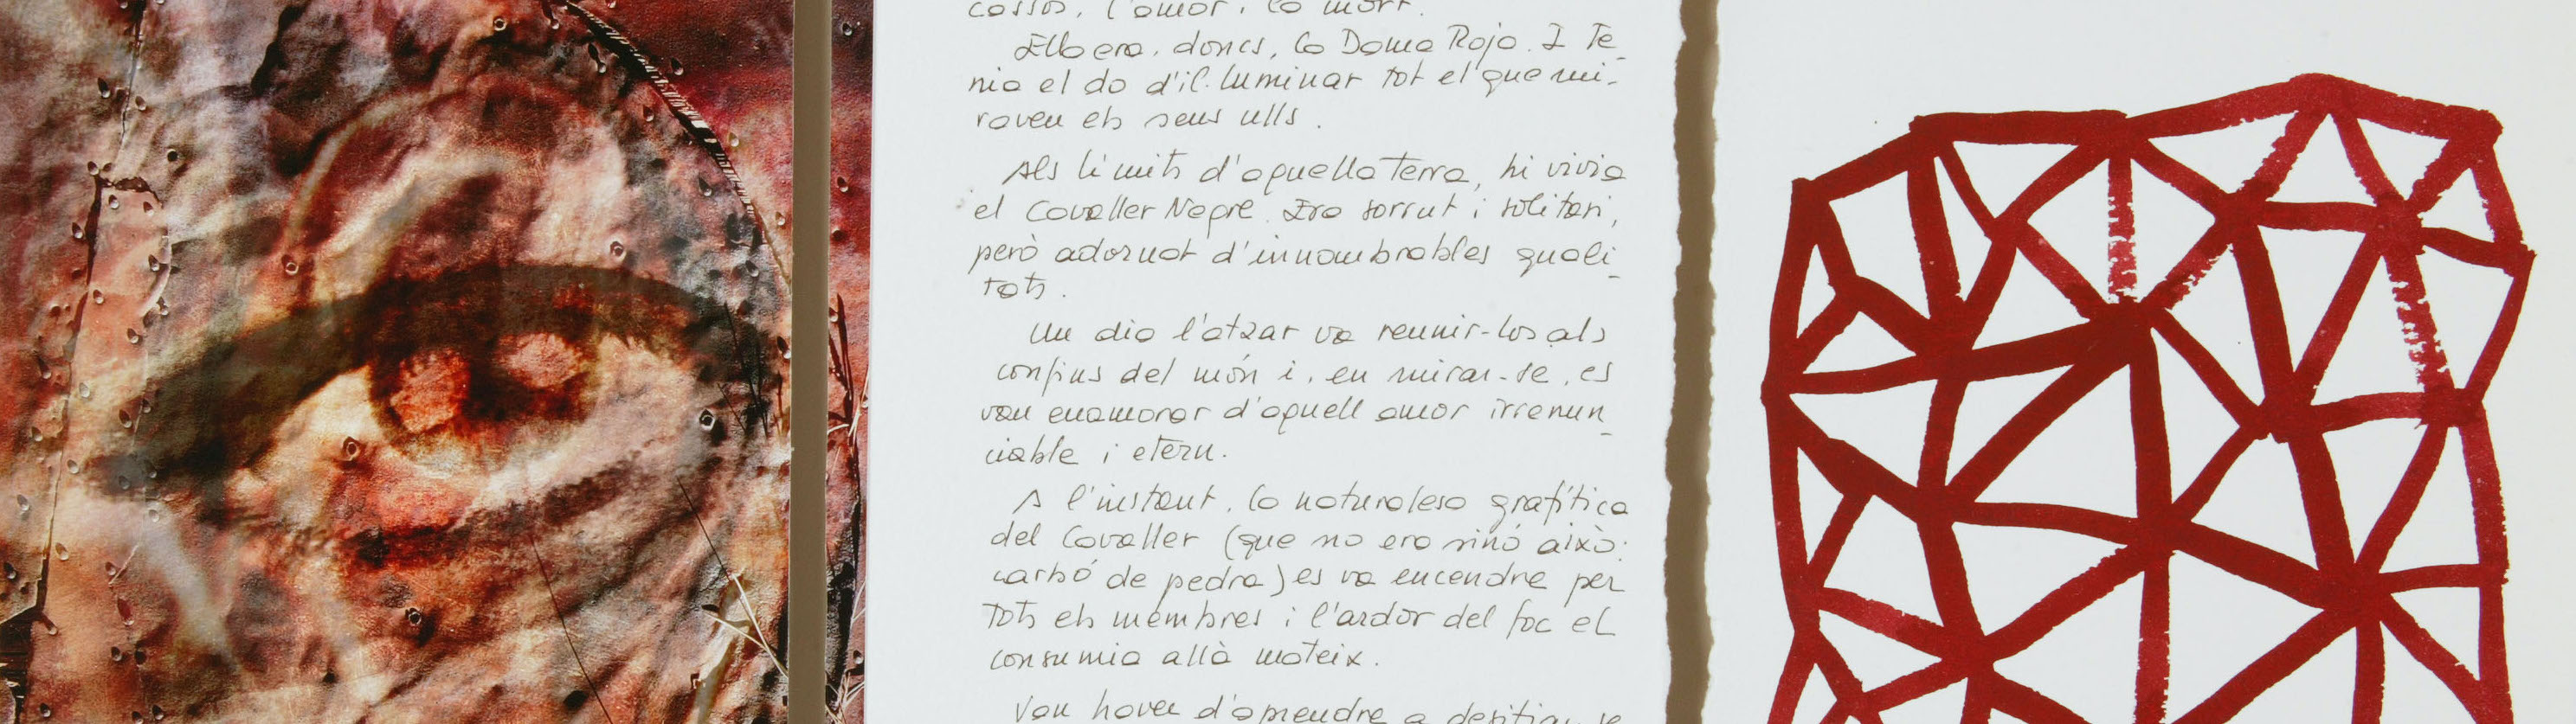 cossos, l'amor, la mort.
Ella era, doncs, la Dama Roja. I te-
nia el do d'il·luminar tot el que mi-
raven els seus ulls.
Als límits d'aquella terra, hi vivia
el Cavaller Negre. Era sorrut i solitari,
però adornat d'innombrables quali-
tats.
Un dia l'atzar va reunir-los als
confins del món i, en mirar-se, es
van enamorar d'aquell amor irrenun-
ciable i etern.
A l'instant, la naturalesa grafítica
del Cavaller (que no era sinó això:
carbó de pedra) es va encendre per
tots els membres i l'ardor del foc el
consumia allà mateix.
Van haver d'aprendre a desitjar-se